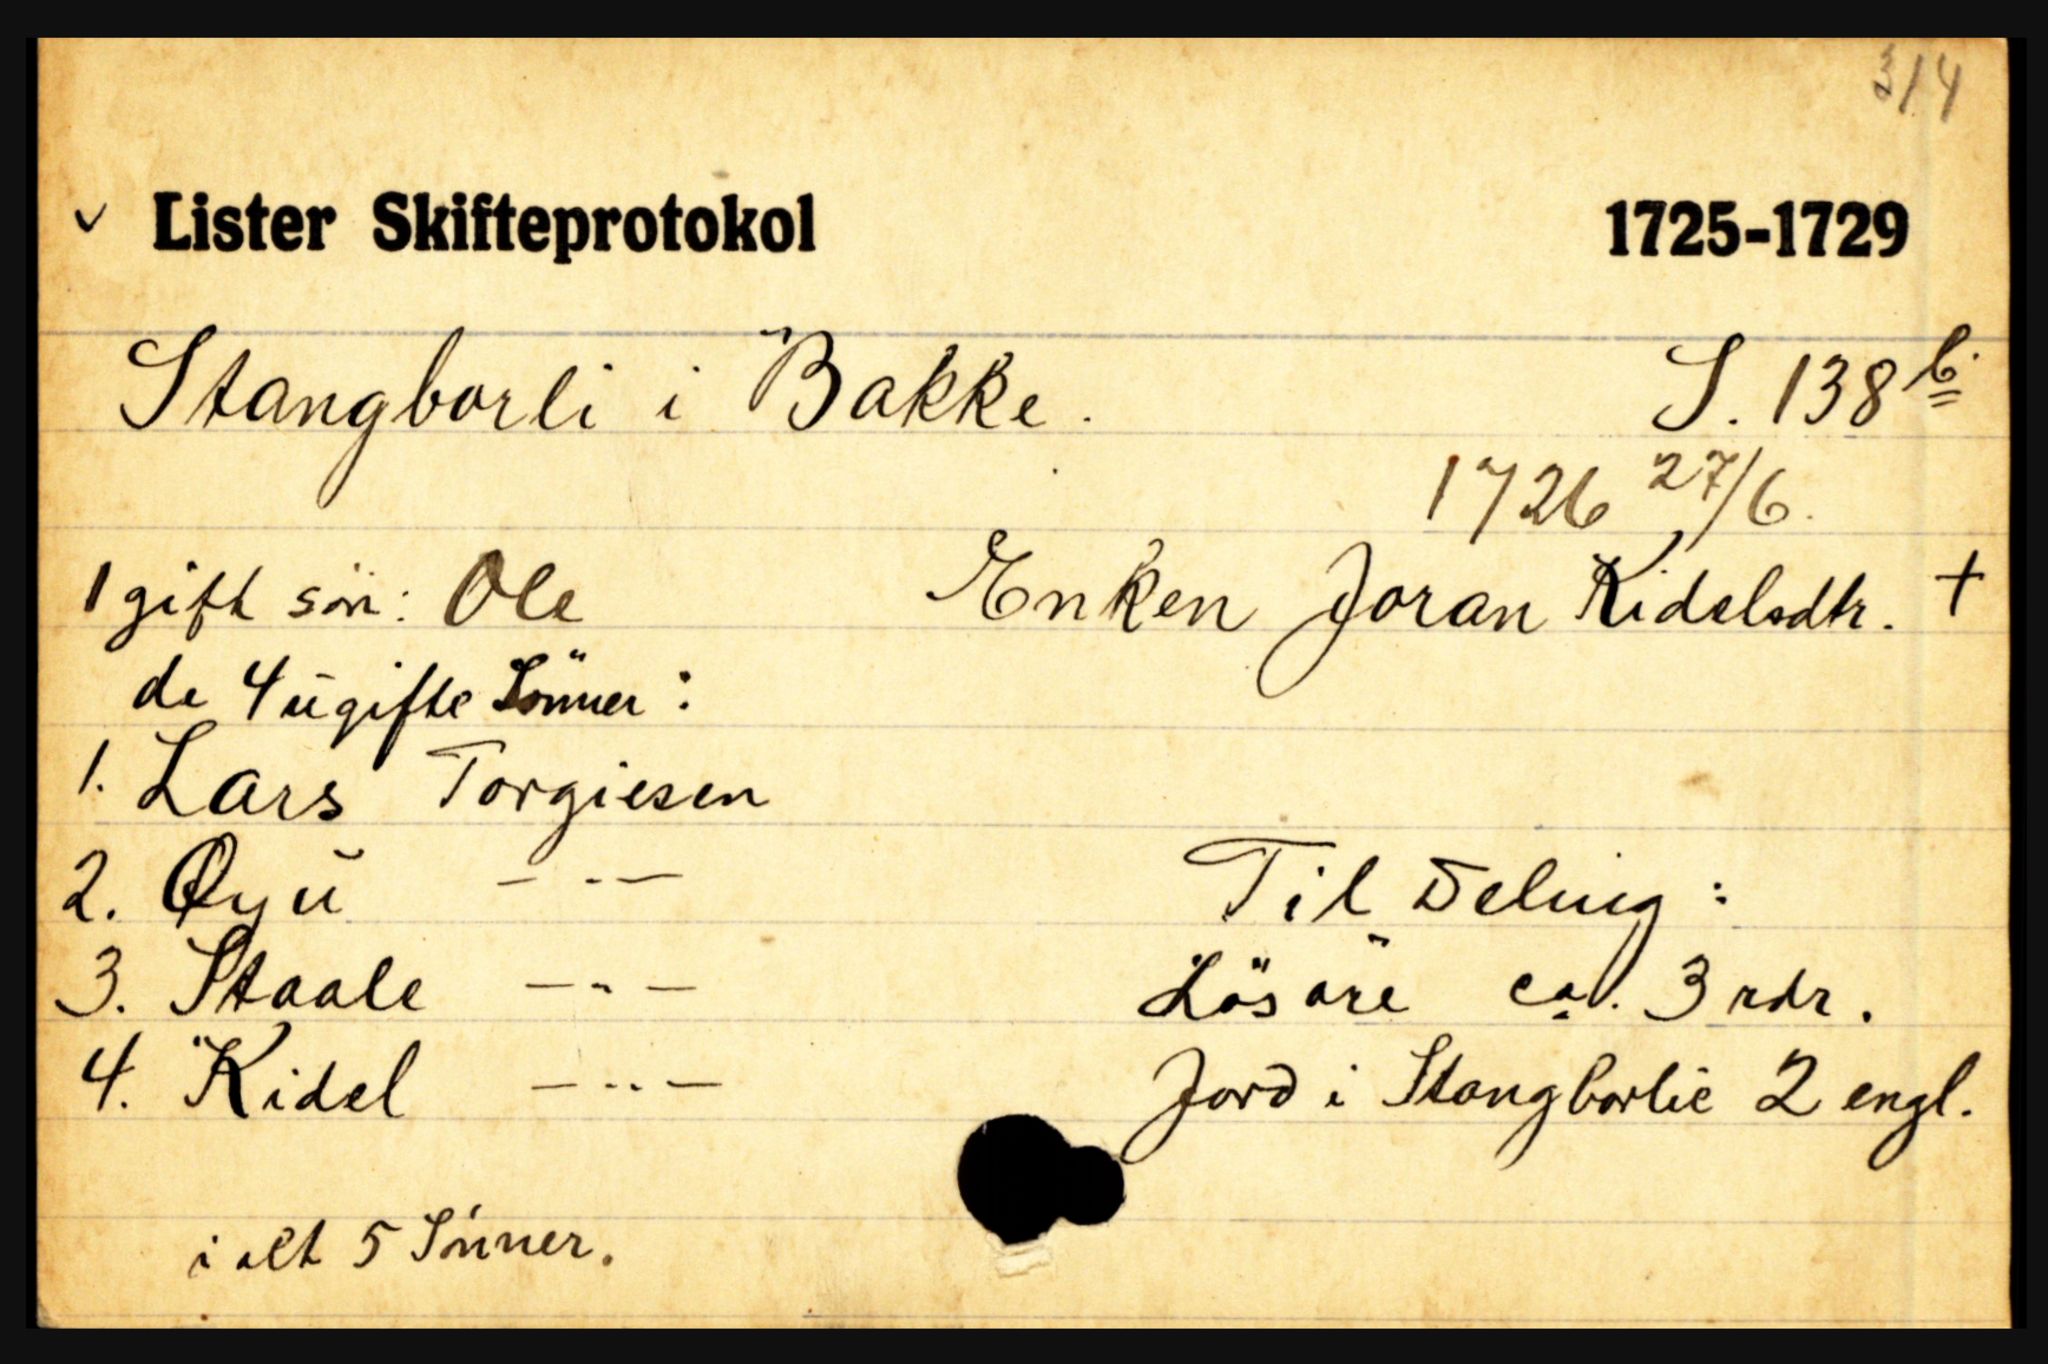 314
✓ Lister Skifteprotokol 1725-1729
Stangborli i Bakke. S. 138 b.
1726 27/6.
1 gift sön: Ole Enken Joran Kidelsdtr. +
de 4 ugifte Sönner:
1. Lars Torgiesen
2. Øyü — " — Til Deling:
3. Staale — " — Lösöre ca. 3 rdr.
4. Kidel — " — Jord i Stangborlie 2 engl.
i alt 5 Sönner.